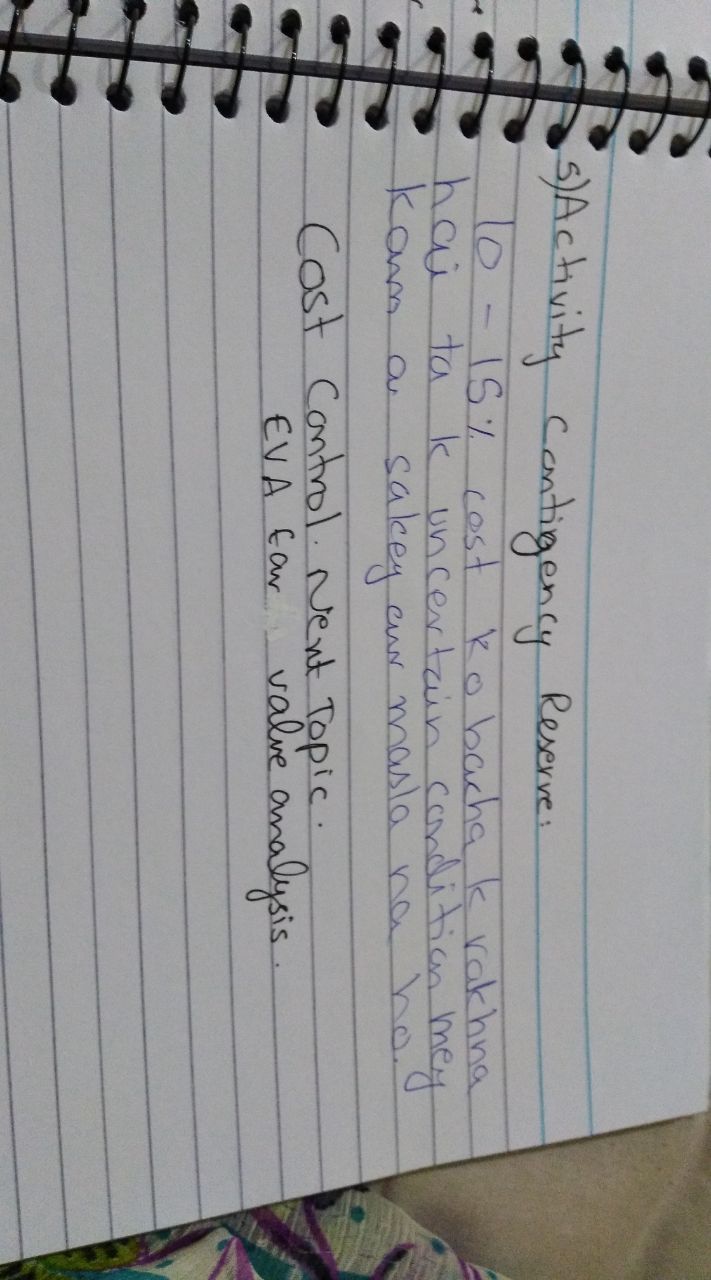 5) Activity Contigency Reserve:
10 - 15% cost ko bacha k rakhna
hai ta k uncertain condition mey
kam a sakey aur masla na ho.
Cost Control. Next Topic.
EVA Ear value analysis.